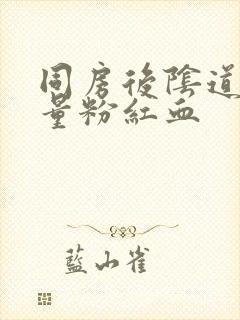 同房後陰道
量粉紅血
藍山雀